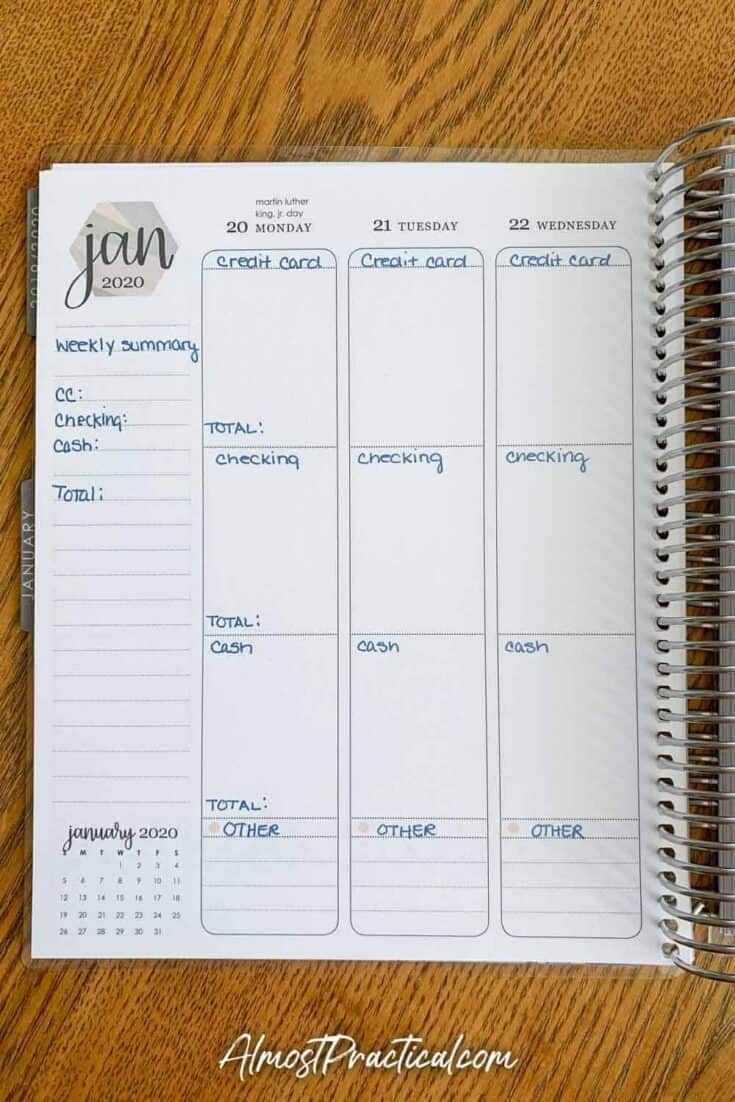 jan
2020
martin luther
king, jr. day
20 MONDAY
21 TUESDAY
22 WEDNESDAY
2019/2020
JANUARY
weekly summary
CC:
Checking:
Cash:
Total:
Credit Card
TOTAL:
Checking
TOTAL:
Cash
TOTAL:
OTHER
Credit Card
Checking
Cash
OTHER
Credit Card
Checking
Cash
OTHER
january 2020
S M T W T F S
1 2 3 4
5 6 7 8 9 10 11
12 13 14 15 16 17 18
19 20 21 22 23 24 25
26 27 28 29 30 31
AlmostPractical.com